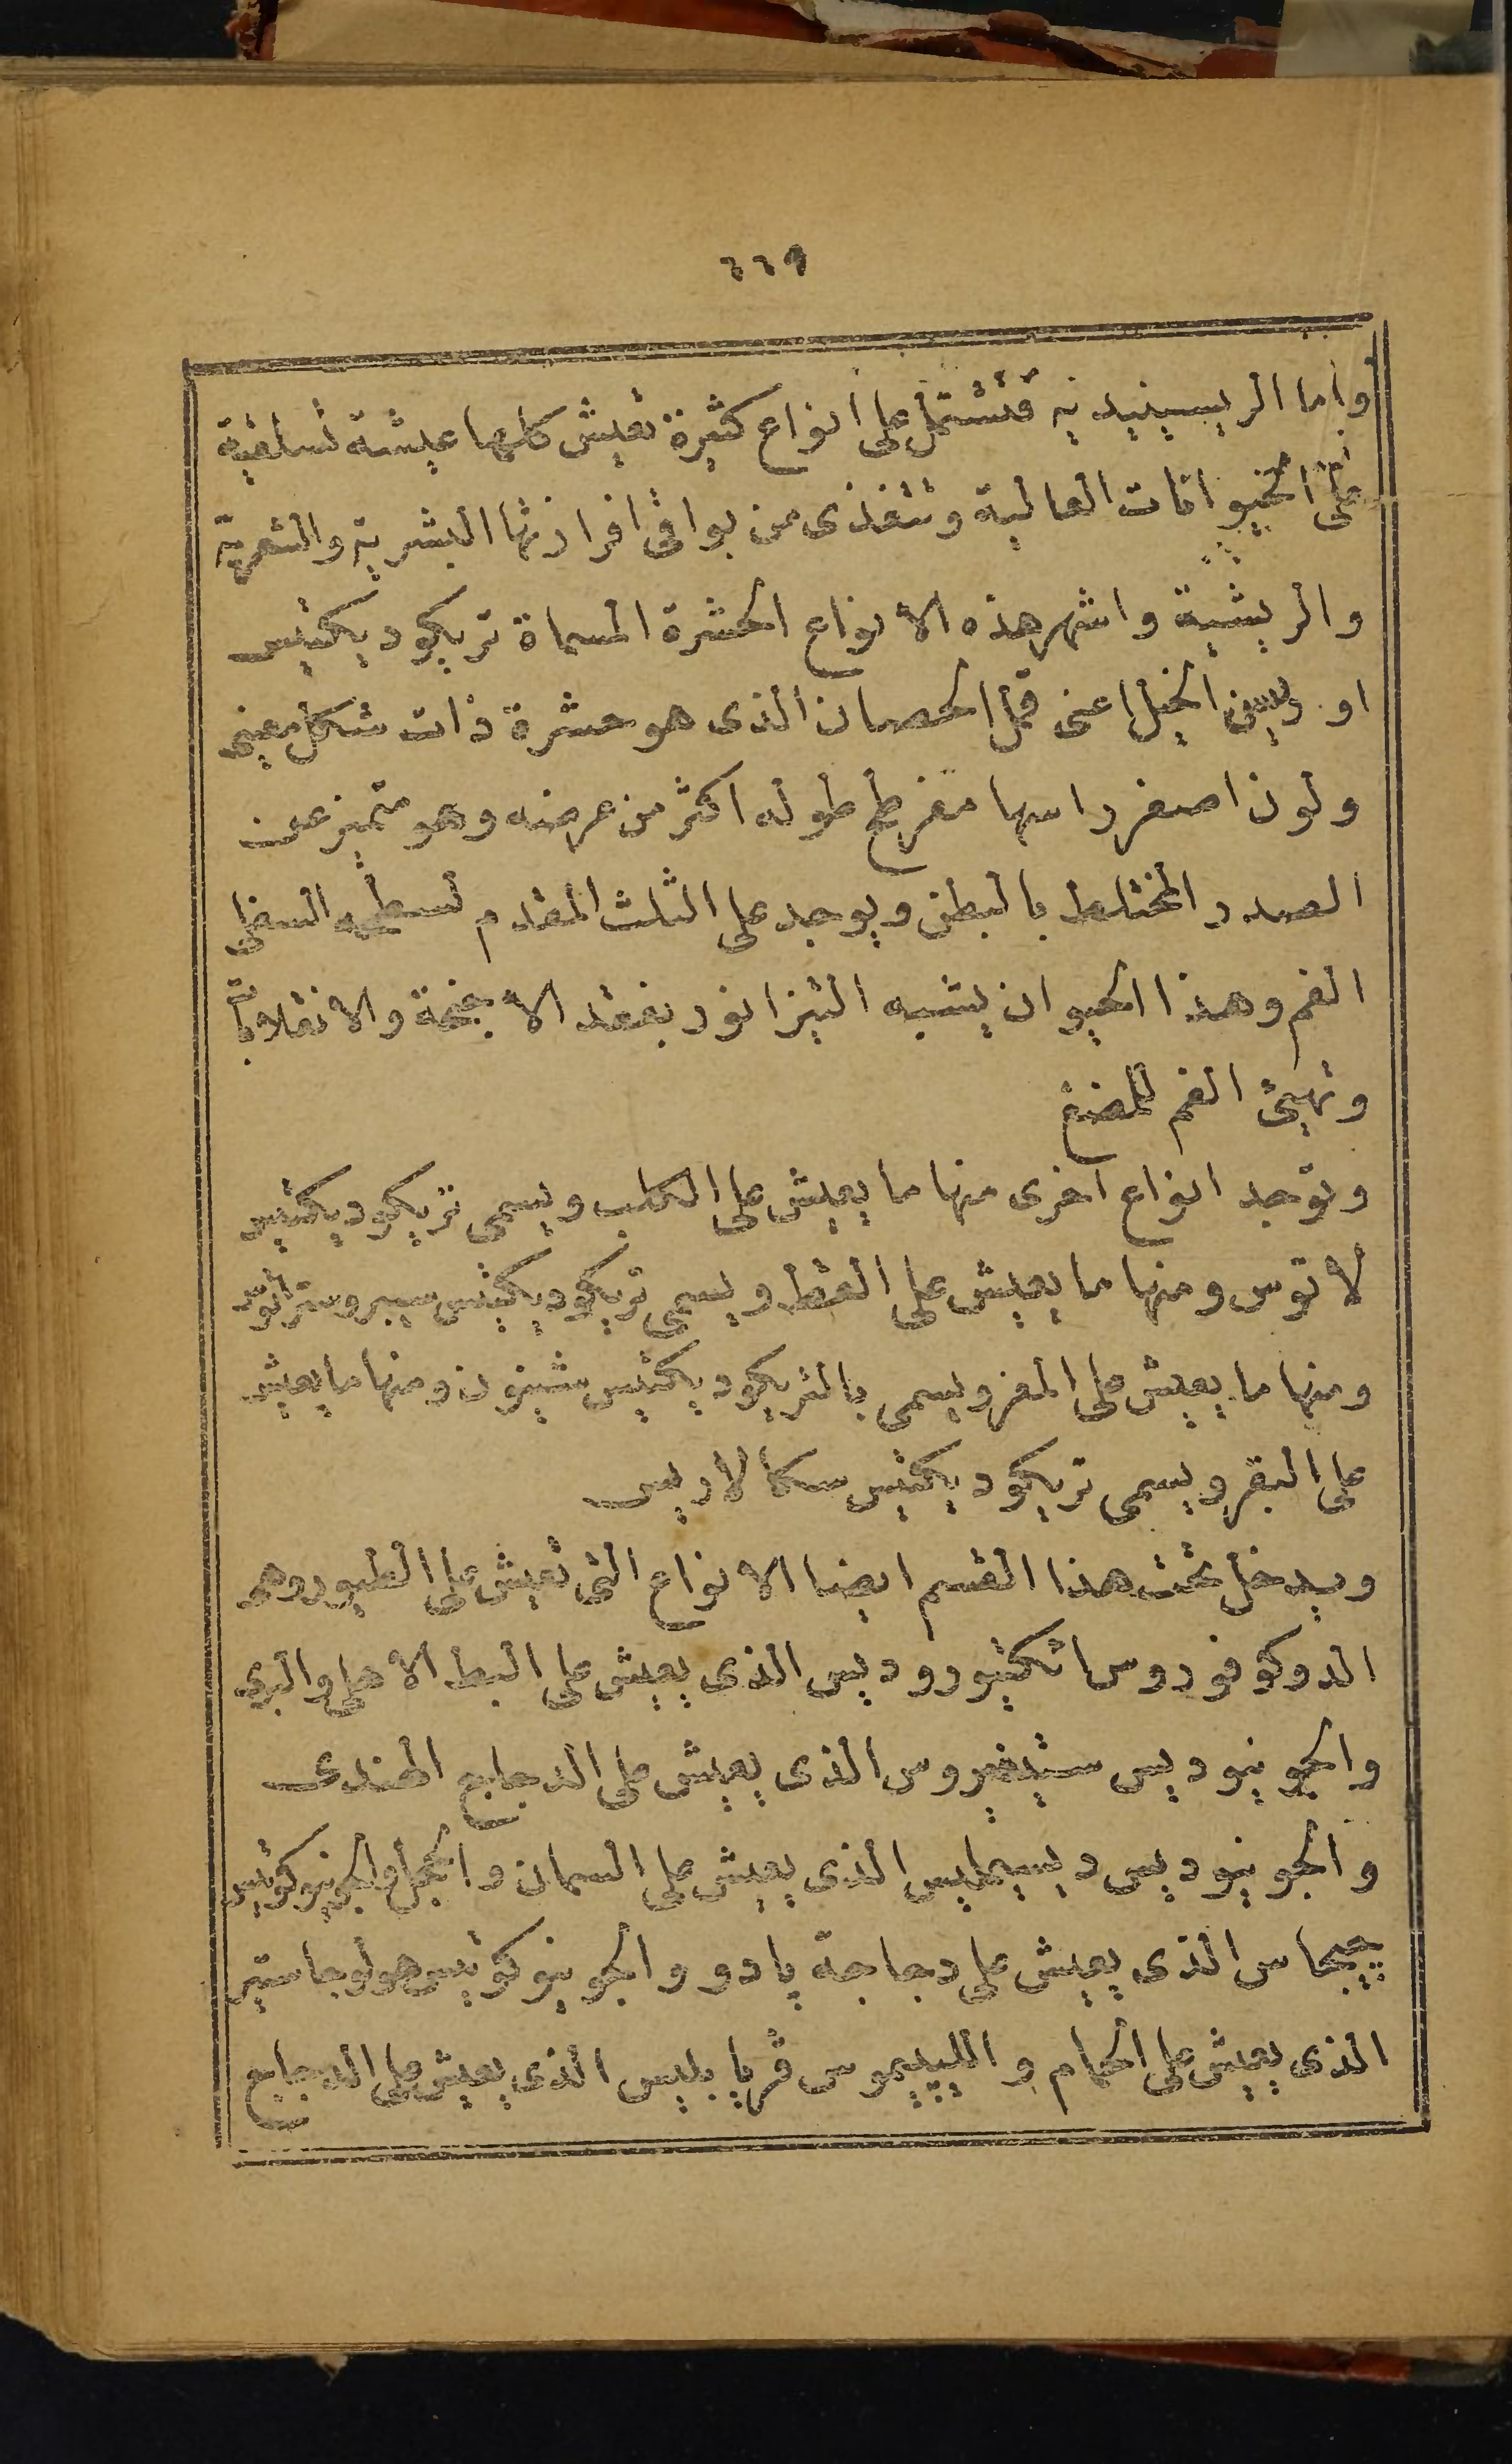 ٤٤٩
واما الريسينيديه فتشتمل على انواع كثيرة تعيش كلها عيشة تسلقية
على الحيوانات العالية وتتغذى من بواقى افرازتها البشرية والشعرية
والريشية واشهر هذه الانواع الحشرة المسماة تريكوديكتيس
او ريسن الخيل اعنى قمل الحصان الذى هو حشرة ذات شكل بيضى
ولون اصفر راسها مفرطح طوله اكثر من عرضه وهو متميز عن
الصدر المختلط بالبطن ويوجد على الثلث المقدم لسطحه السفلى
الفم وهذا الحيوان يشبه التيزانور بفقد الاجنحة والانقلابات
وتهيئ الفم للمضغ
وتوجد انواع اخرى منها ما يعيش على الكلب ويسمى تريكوديكتيس
لاتوس ومنها ما يعيش على القط ويسمى تريكوديكتيس سبروستراتوس
ومنها ما يعيش على المعز ويسمى بالتريكوديكتيس شينون ومنها ما يعيش
على البقر ويسمى تريكوديكتيس سكالاريس
ويدخل تحت هذا القسم ايضا الانواع التى تعيش على الطيور وهى
الدوكوفوروس اتكتيوروديس الذى يعيش على البط الاهلى والبرى
والجونيوديس ستيفيروس الذى يعيش على الدجاج الهندى
والجونيوديس ديسيملبس الذى يعيش على السمان والحجل والجونيوكوتيس
چيجاس الذى يعيش على دجاجة پادو والجونيوكوتيس هولوجاستير
الذى يعيش على الحمام والليپيموس ڤريابليس الذى يعيش على الدجاج